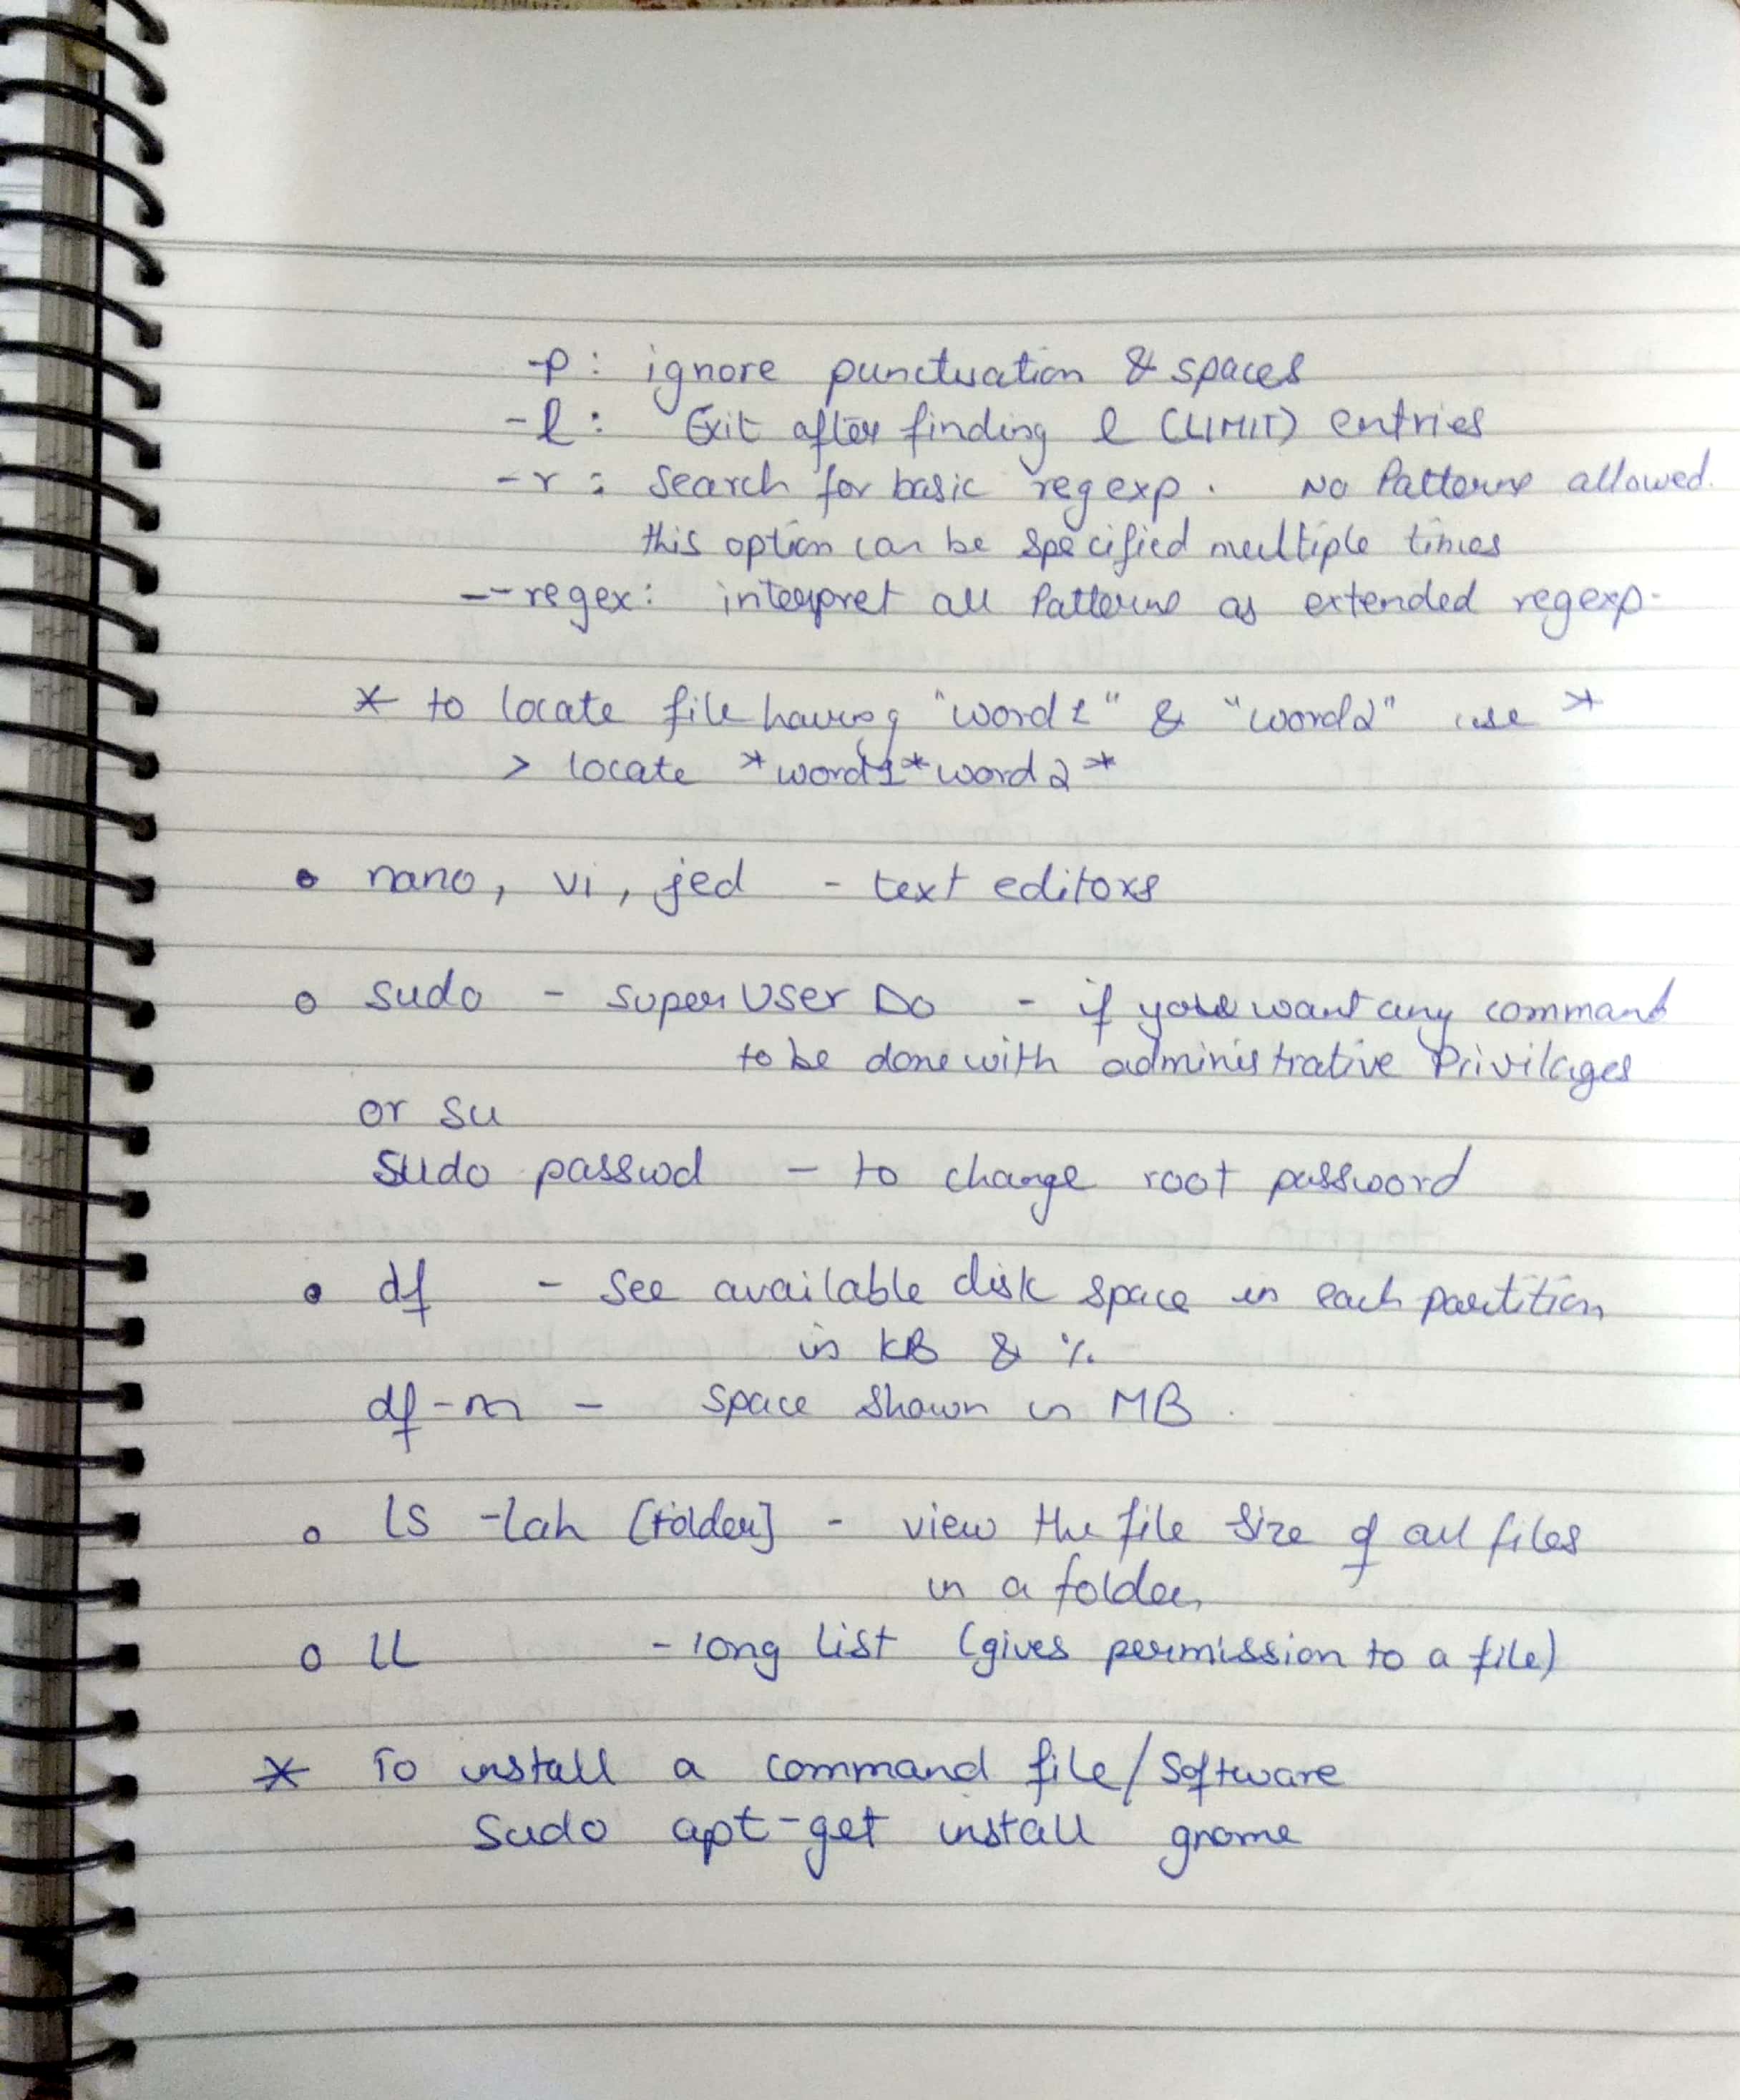 -p : ignore punctuation & spaces
-l : Exit after finding l (LIMIT) entries
-r : Search for basic regexp. No Patterns allowed.
this option can be specified multiple times
--regex: interpret all Patterns as extended regexp.
* to locate file having "word1" & "word2" use *
> locate *word1*word2*
• nano, vi, jed - text editors
o sudo - super User Do - if you want any command
to be done with administrative Privilages
or su
sudo passwd - to change root password
• df - See available disk space in each partition
in KB & %.
df -m - Space shown in MB.
o ls -lah [folder] - view the file size of all files
in a folder
o ll - long list (gives permission to a file)
* To install a command file/Software
sudo apt-get install gnome